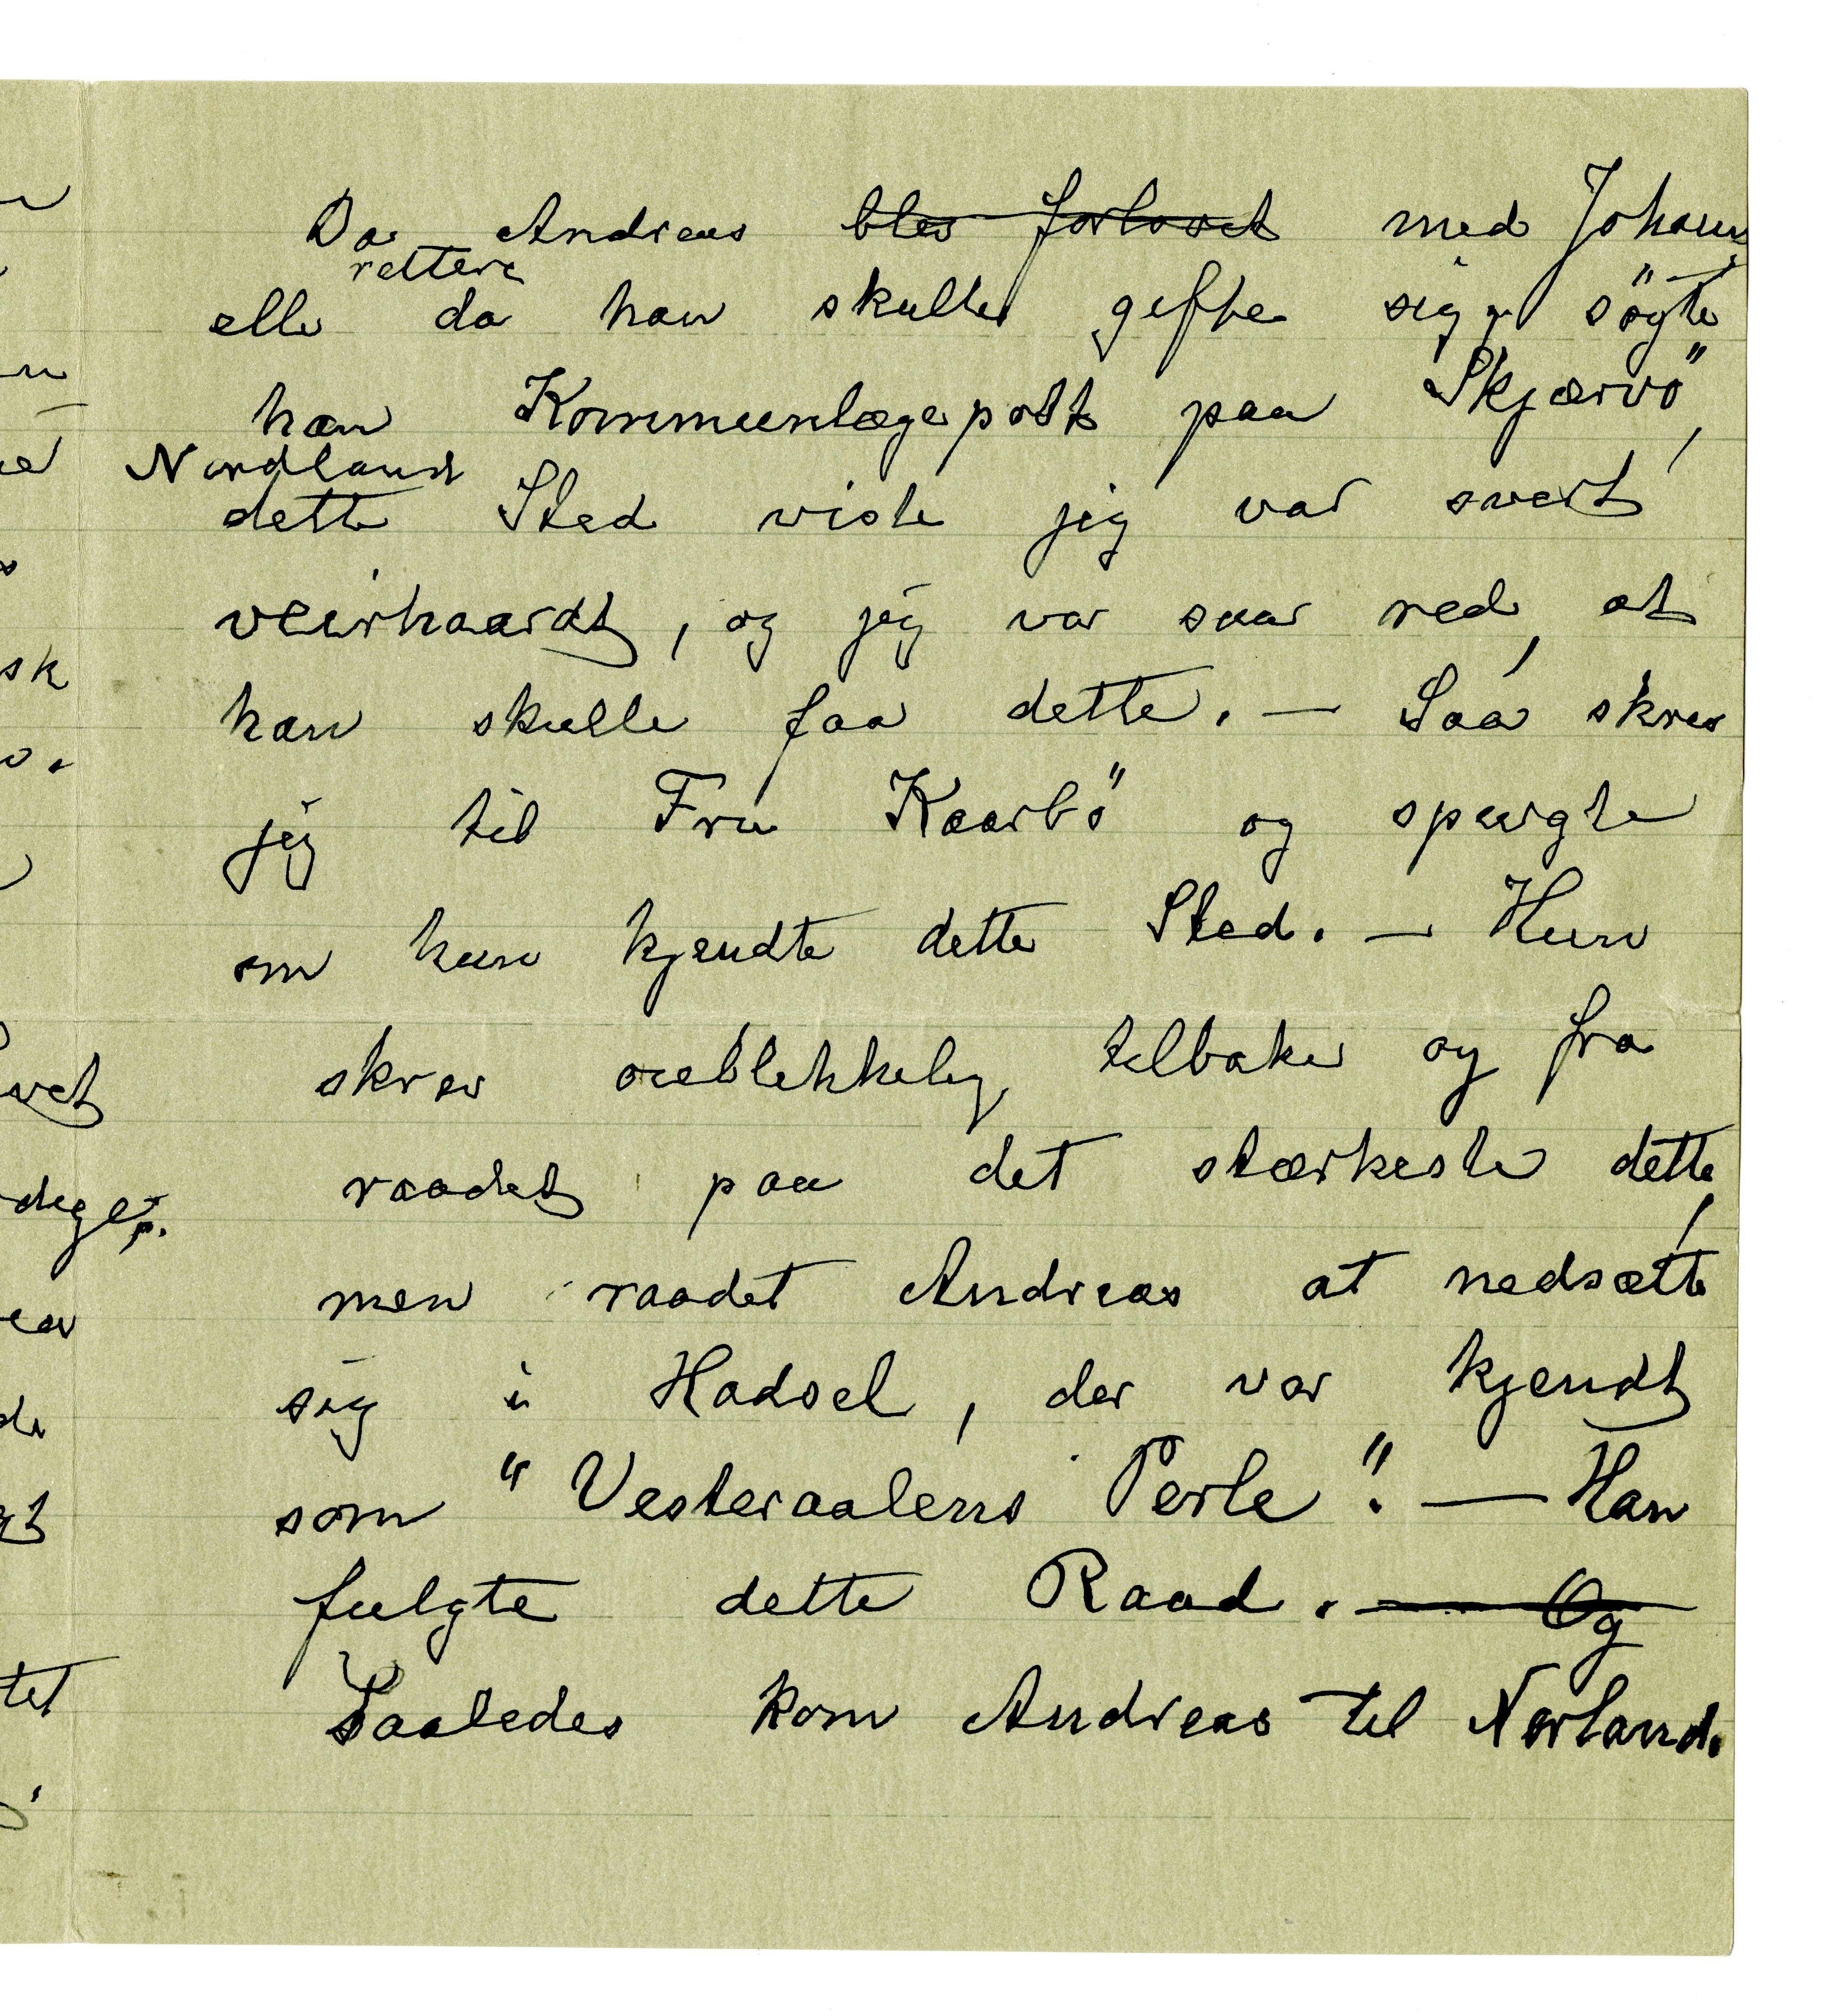 Da Andreas blev forlovet med Johann
rettere
elle da han skulle gifte sig, søgte
han Kommunlægepost paa Skjærvö,
Nordland
dette Sted viste jeg var svert
veirhaardt, og jeg var saar red, at
han skulle faa dette. — Saa skrev
jeg til Fru Kaarbö og spurgte
om hun kjendte dette Sted. — Hun
skrev oieblikkelig tilbake og fra
raadet paa det stærkeste dette,
men raadet Andreas at nedsætte
sig i Hadsel, der var kjendt
som "Vesteraalens Perle". — Han
fulgte dette Raad. — Og
Saaledes kom Andreas til Norland.